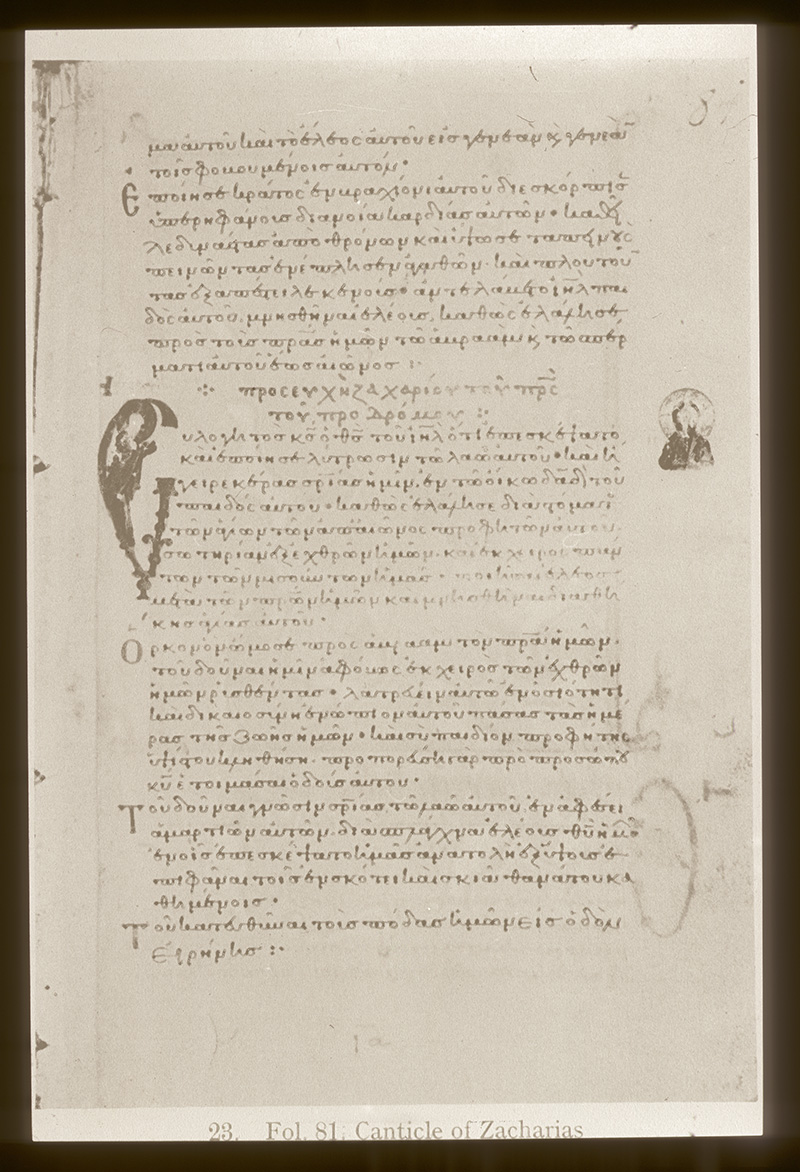 μα αὐτοῦ καὶ τὸ ἔλεος αὐτοῦ εἰς γενεὰν κ γενεὰν
τοῖς φοβουμένοις αὐτόν·
Ἐποίησε κράτος ἐν βραχίονι αὐτοῦ διεσκόρπισ
ὑπερηφάνους διανοία καρδίας αὐτῶν· καθεῖ
λε δυνάστας ἀπὸ θρόνων καὶ ὕψωσε ταπεινούς
πεινῶντας ἐνέπλησεν ἀγαθῶν· καὶ πλουτοῦν
τας ἐξαπέστειλε κενούς· ἀντελάβετο ιηλ παι
δὸς αὐτοῦ, μνησθῆναι ἐλέους, καθὼς ἐλάλησε
πρὸς τοὺς πρας ἡμῶν τῶ ἀβραὰμ κ τῶ σπέρ
ματι αὐτοῦ ἕως αἰῶνος :
προσευχὴ ζαχαρίου τοῦ πρς
τοῦ προδρόμου :
Εὐλογητὸς κς ὁ θς τοῦ ιηλ ὅτι ἐπεσκέψατο
καὶ ἐποίησε λύτρωσιν τῶ λαῶ αὐτοῦ· καὶ ἤ
γειρε κέρας σριας ἡμῖν, ἐν τῶ οἴκω δαδ τοῦ
παιδὸς αὐτοῦ· καθὼς ἐλάλησε διὰ στόματ
τῶν ἁγίων τῶν ἀπ αἰῶνος προφητῶν αὐτοῦ·
σωτηρίαν ἐξ ἐχθρῶν ἡμῶν· καὶ ἐκ χειρὸς πάν
των τῶν μισούντων ἡμᾶς· ποιῆσαι ἔλεος
μετὰ τῶν πρων ἡμῶν καὶ μνησθῆναι διαθή
κης ἁγίας αὐτοῦ·
Ὅρκον ὃν ὤμοσε πρὸς ἀβρααμ τὸν πρα ἡμῶν·
τοῦ δοῦναι ἡμῖν ἀφόβως ἐκ χειρὸς τῶν ἐχθρῶν
ἡμῶν ρυσθέντας· λατρεύειν αὐτῶ ἐν ὁσιότητι
καὶ δικαιοσύνη ἐνώπιον αὐτοῦ πάσας τὰς ἡμέ
ρας τῆς ζωῆς ἡμῶν· καὶ σὺ παιδίον προφήτης
ὑψίστου κληθήση· προπορεύση γὰρ πρὸ προσώπου
κυ ἑτοιμάσαι ὁδοὺς αὐτοῦ·
Τοῦ δοῦναι γνῶσιν σριας τῶ λαῶ αὐτοῦ, ἐν ἀφέσει
ἁμαρτιῶν αὐτῶν· διὰ σπλάγχνα ἐλέους θυ ἡμῶν
ἐν οἷς ἐπεσκέψατο ἡμᾶς ἀνατολὴ ἐξ ὕψους ἐ
πιφᾶναι τοῖς ἐν σκότει καὶ σκιᾶ θανάτου κα
θημένοις·
Τοῦ κατευθῦναι τοὺς πόδας ἡμῶν εἰς ὁδὸν
εἰρήνης :
23. Fol. 81. Canticle of Zacharias